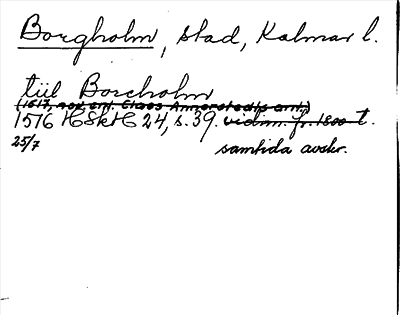 Borgholm, stad, Kalmar l.
tiil Borcholm
(1617, acc. enl. Claes Annerstedts ant.)
1576 HSkH 24, s. 39. vidim. fr. 1800-t.
25/7
samtida avskr.